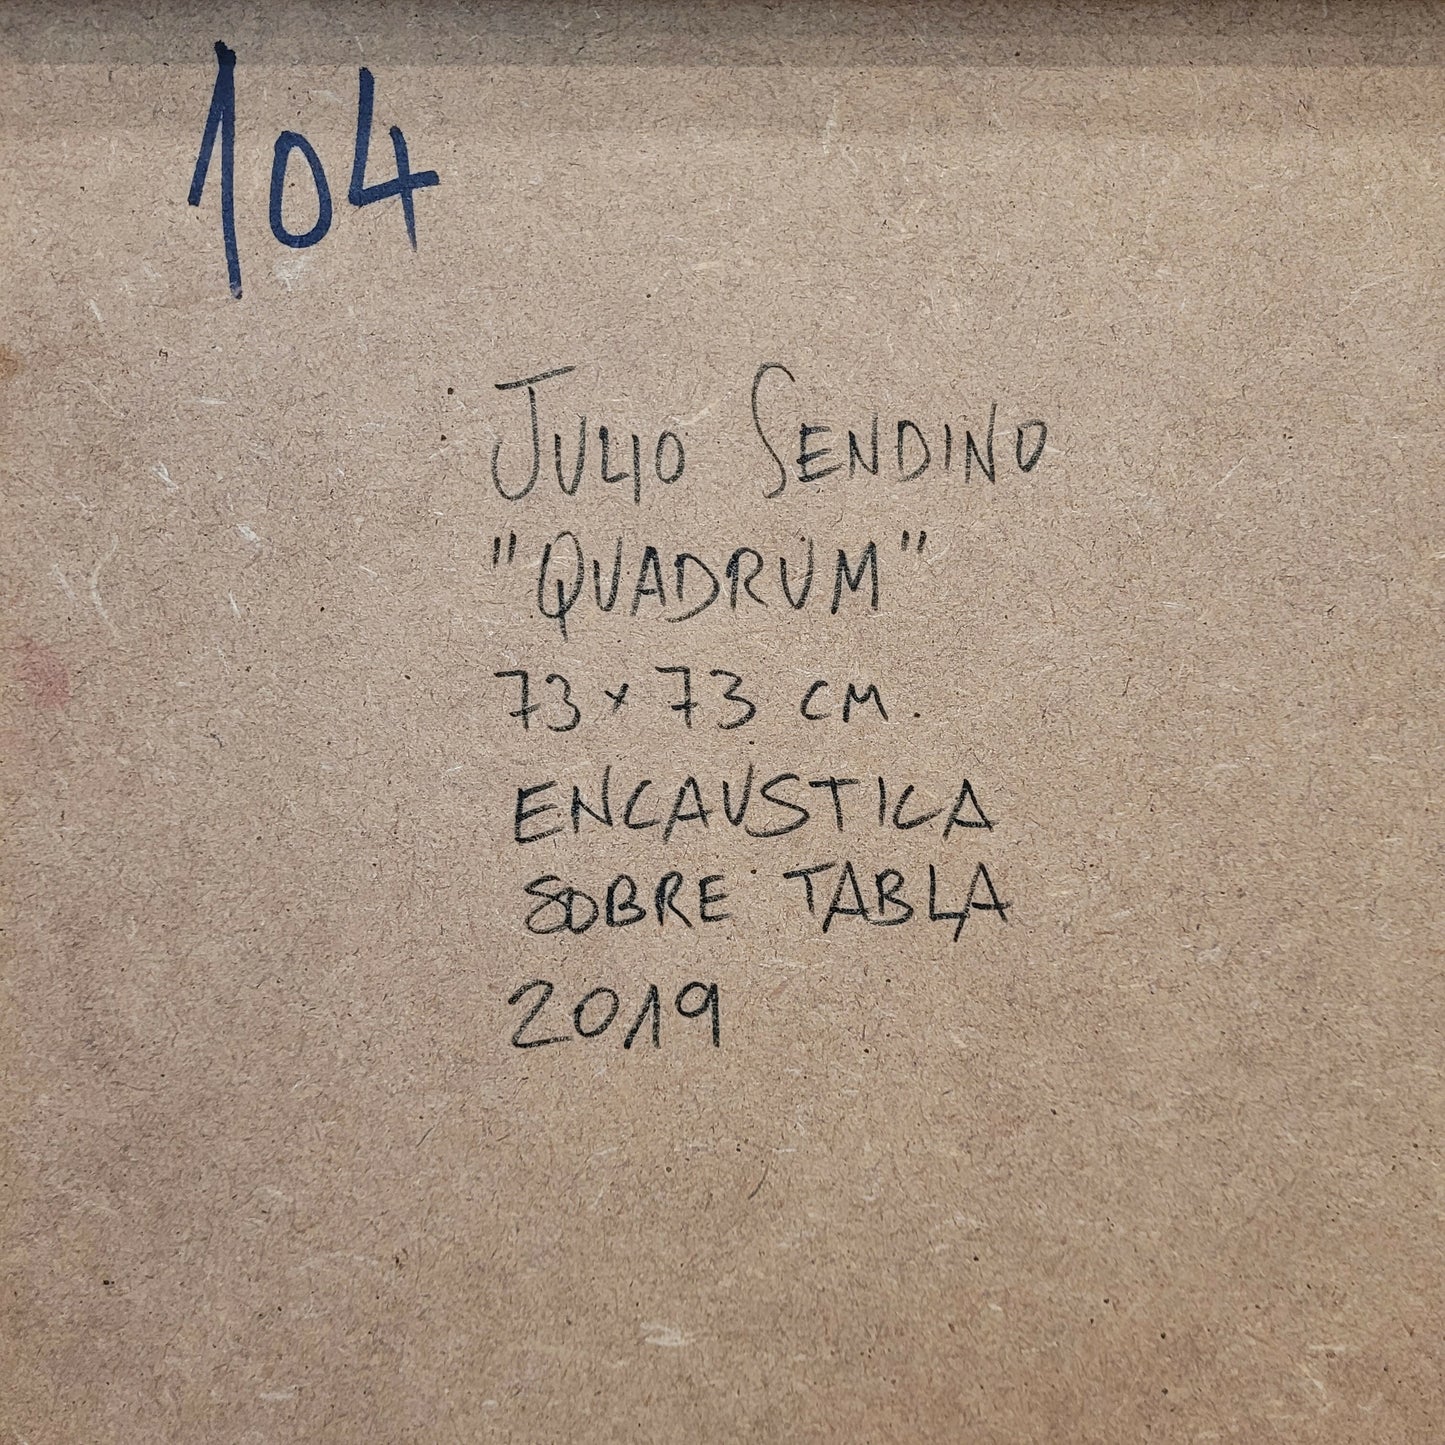 104
JULIO SENDINO
"QUADRUM"
73 x 73 CM.
ENCAUSTICA
SOBRE TABLA
2019